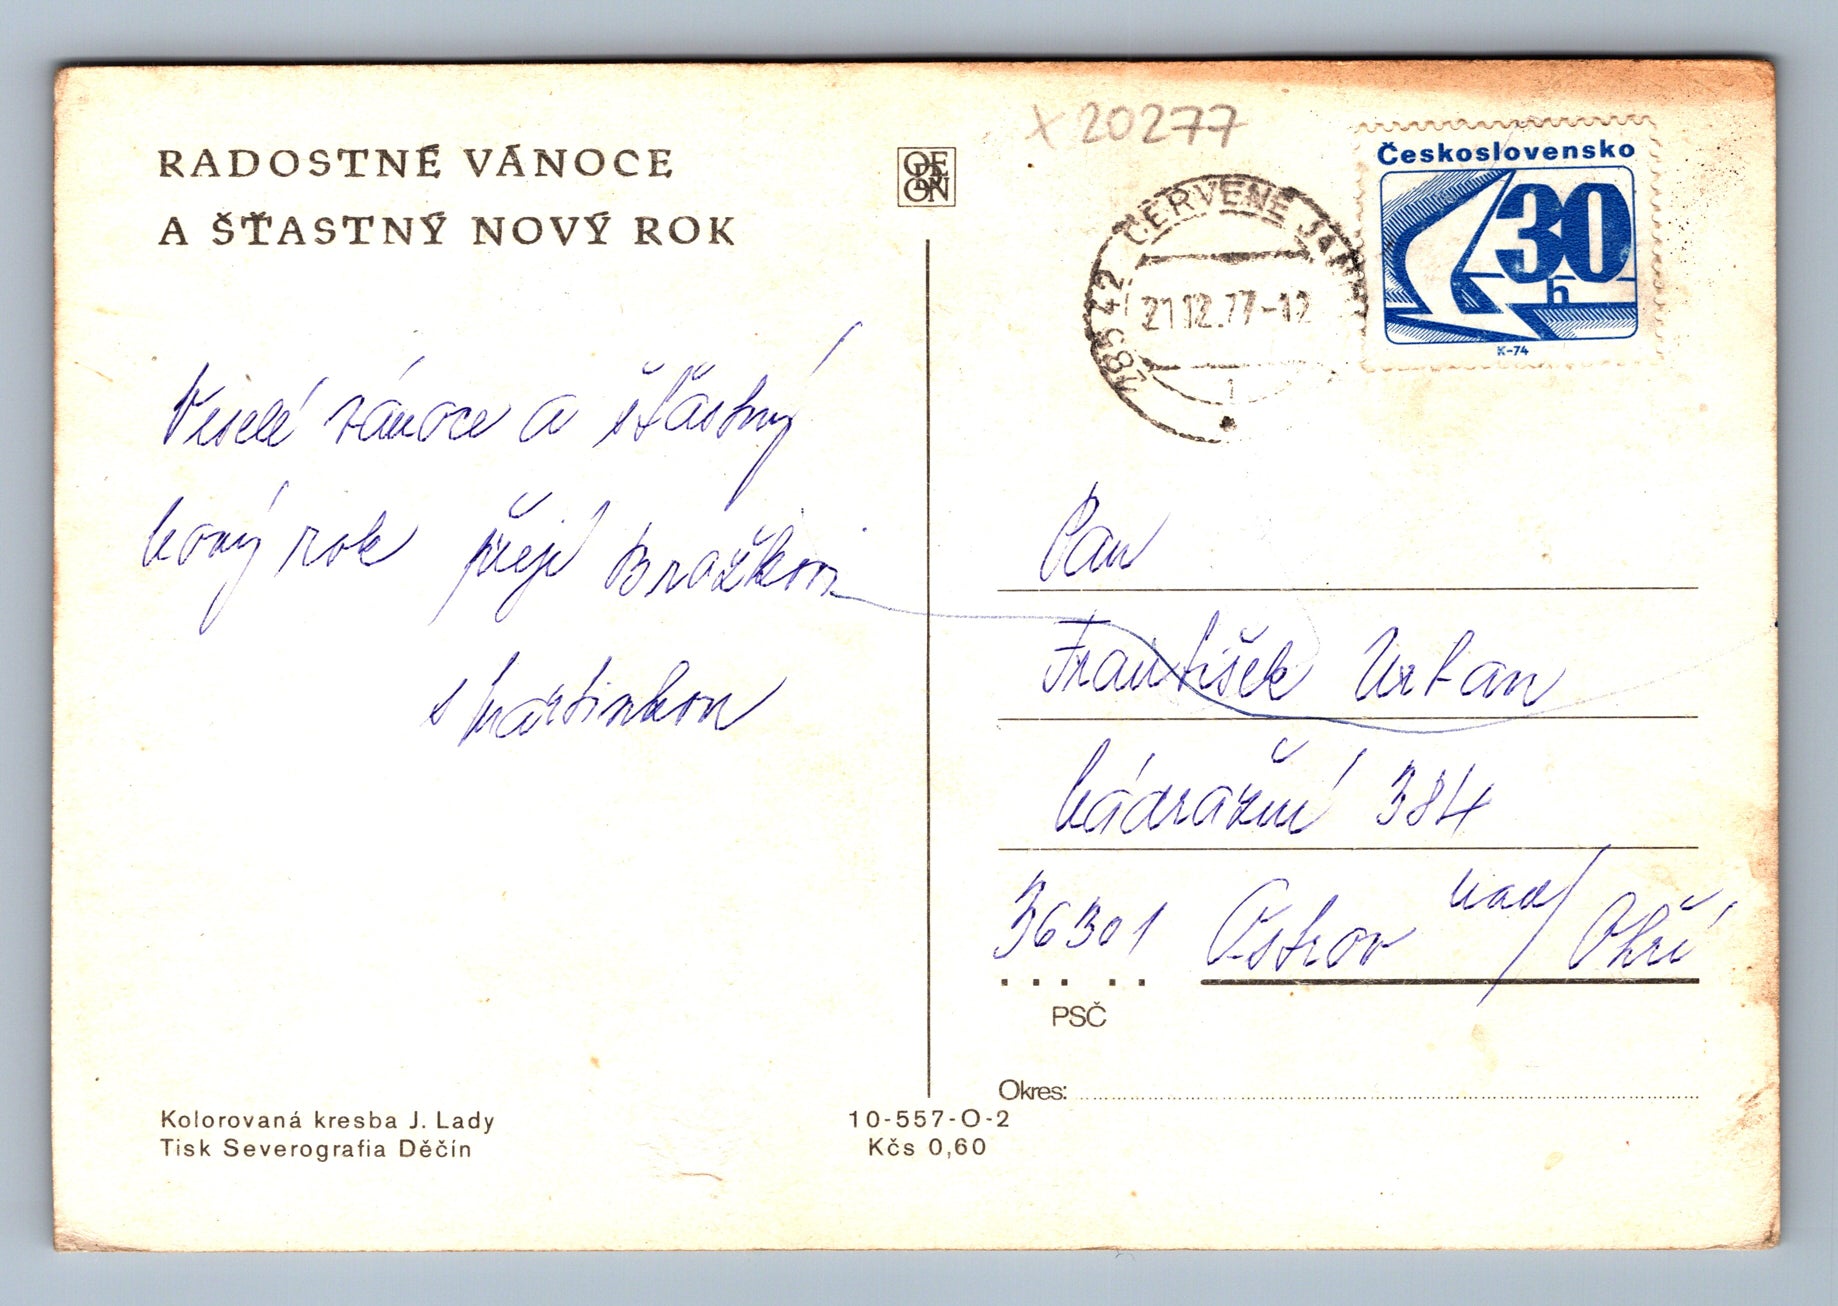 RADOSTNÉ VÁNOCE
A ŠŤASTNÝ NOVÝ ROK
ODEON
X 20277
Československo
30
h
K-74
285 42 ČERVENÉ JAN
21.12.77-12
1
Veselé vánoce a šťastný
nový rok přejí Brožkovi
s Martinkou
Pan
František Urban
Nádražní 384
36301 Ostrov nad/Ohří
PSČ
Okres:
Kolorovaná kresba J. Lady
Tisk Severografia Děčín
10-557-O-2
Kčs 0,60